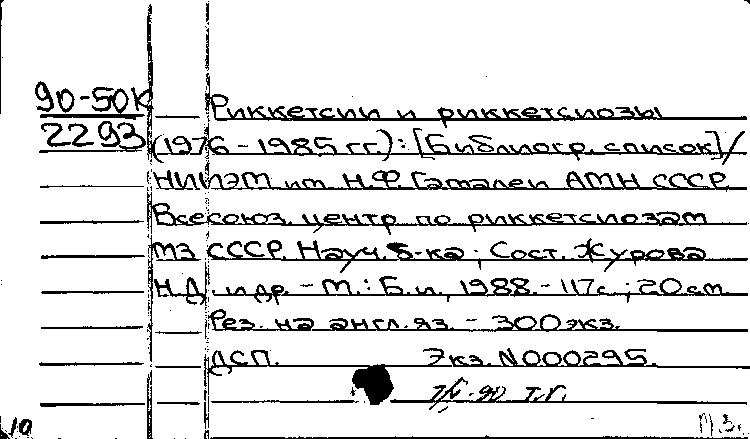 90-50К
2293
Риккетсии и риккетсиозы
(1976-1985 гг.): [Библиогр. список] /
НИИЭМ им. Н.Ф. Гамалеи АМН СССР
Всесоюз. центр по риккетсиозам
МЗ СССР. Науч. б-ка ; Сост. Журова
Н.Д. и др. - М. : Б.и., 1988. - 117с. ; 20см.
Рез. на англ. яз. - 300экз.
ДСП. Экз. N000295.
90 Т.Г.
10